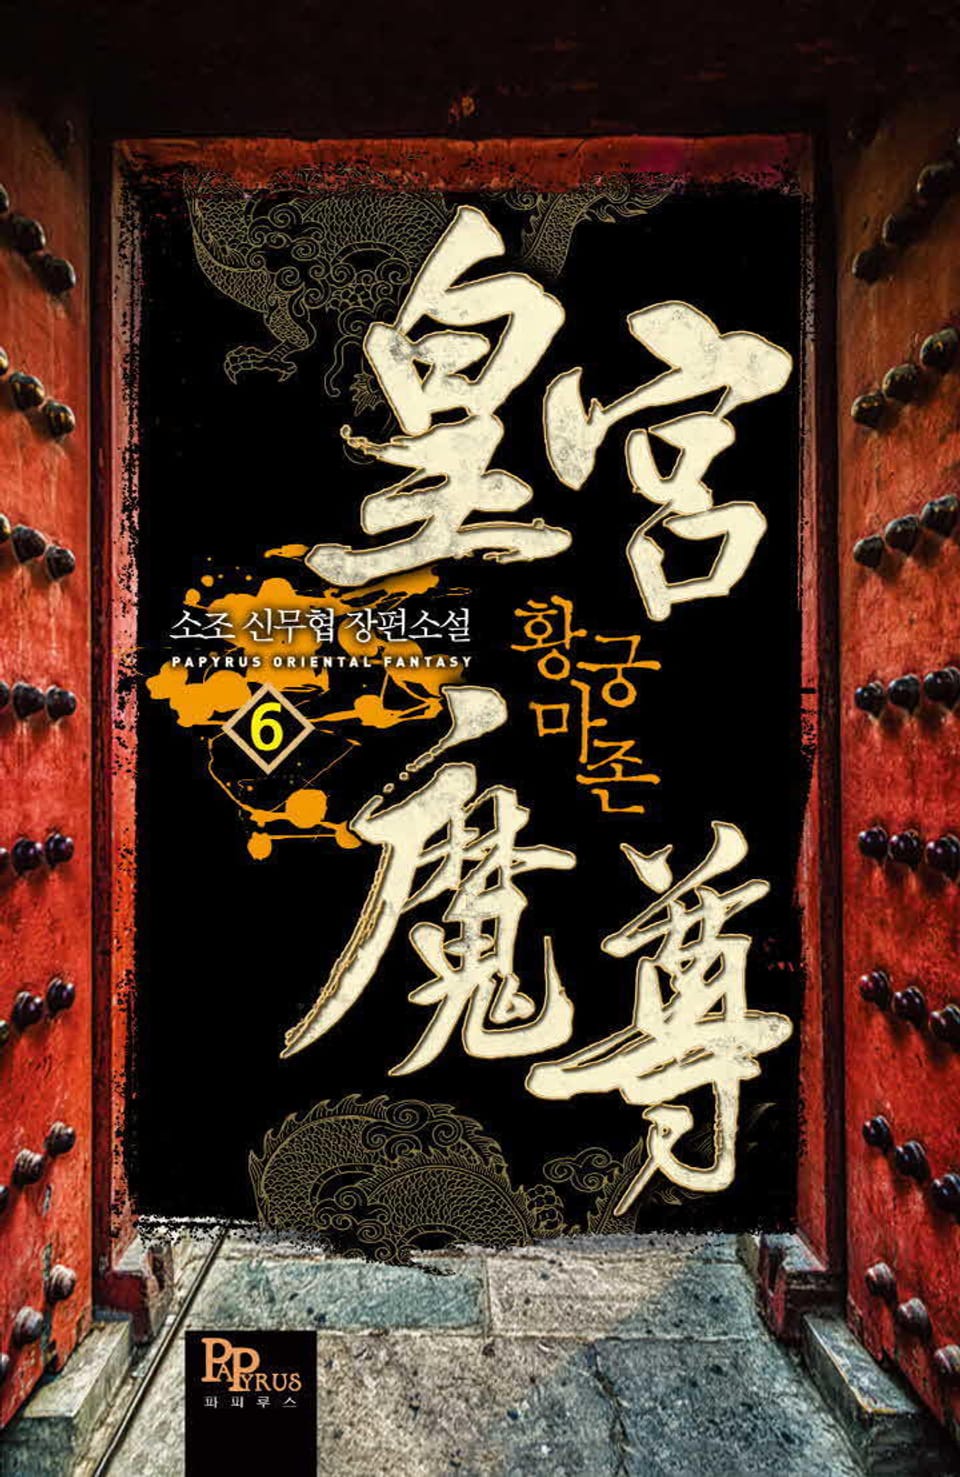 皇宮
소조 신무협 장편소설
PAPYRUS ORIENTAL FANTASY
6
황궁
마존
魔尊
PAPYRUS
파피루스